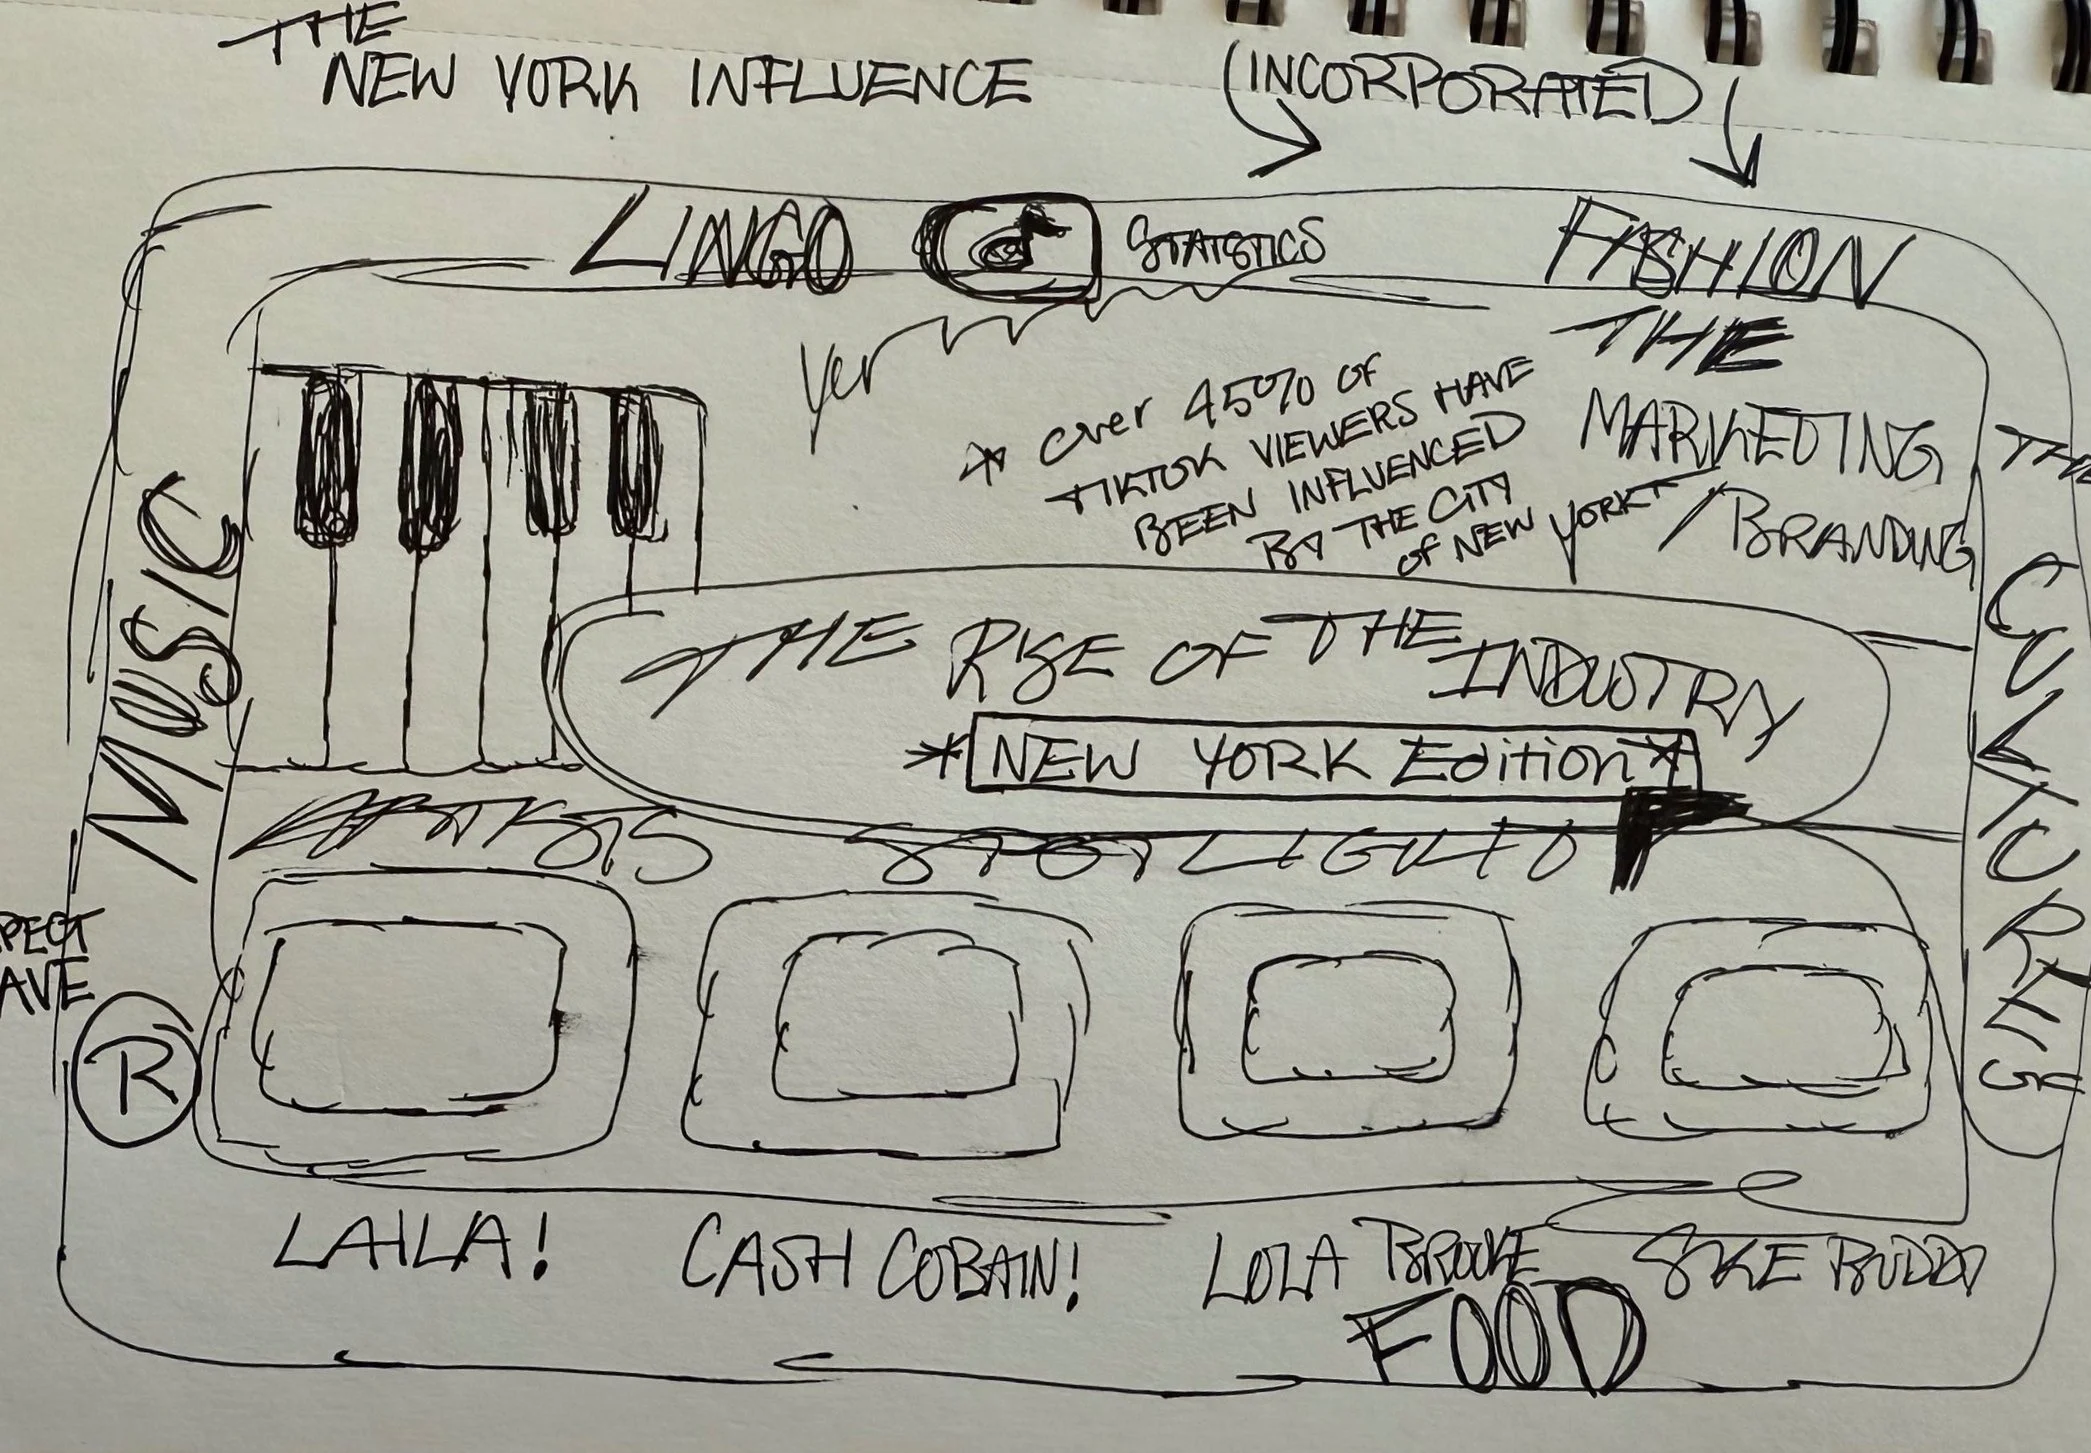 THE
NEW YORK INFLUENCE
(INCORPORATED)
LINGO
STATISTICS
FASHION
THE
MARKEDTING
/BRANDING
yer
* Over 45% OF
TIKTOK VIEWERS HAVE
BEEN INFLUENCED
BY THE CITY
OF NEW YORK
MUSIC
THE RISE OF THE
INDUSTRY
*NEW YORK Edition*
SPOTLIGHT
PECT
AVE
R
THE
CULTURE
LAILA!
CASH COBAIN!
LOLA BROOKE
SKE
FOOD